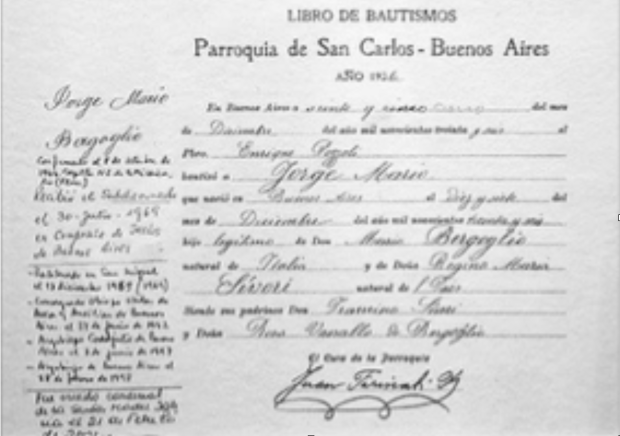 LIBRO DE BAUTISMOS
Parroquia de San Carlos - Buenos Aires
AÑO 1936
Jorge Mario
Bergoglio
En Buenos Aires a veinte y cinco del mes
de Diciembre del año mil novecientos treinta y seis el
Pbro. Enrique Pozzoli
bautizó a Jorge Mario
que nació en Buenos Aires el diez y siete del
mes de Diciembre del año mil novecientos treinta y seis
hijo legítimo de Don Mario Bergoglio
natural de Italia y de Doña Regina María
Sívori natural de
Siendo sus padrinos Don Francisco Sívori
y Doña Rosa Vassallo de Bergoglio
El Cura de la Parroquia
Juan
Recibió el Subdiaconado
el 30-Julio-1969
en
de Buenos Aires
- en San Miguel
el 13 Diciembre 1969 (1969)
- Consagrado Obispo titular de
Auca y Auxiliar de Buenos
Aires el 27 de junio de 1992
- Arzobispo Coadjutor de Buenos
Aires el 3 de junio de 1997
- Arzobispo de Buenos Aires el
28 de febrero de 1998
Fue creado cardenal
de
el 21 de Febrero
de 2001